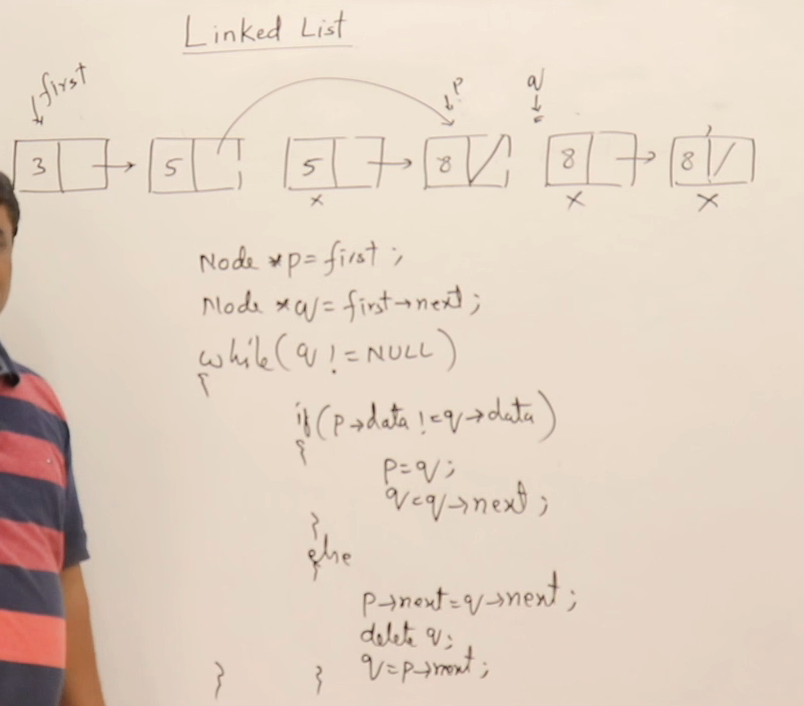 Linked List
first
p
q
3 5 5 8 8 8
x x x
Node *p=first;
Node *q=first→next;
while(q != NULL)
{
if(p→data != q→data)
{
p=q;
q=q→next;
}
else
{
p→next=q→next;
delete q;
q=p→next;
} }